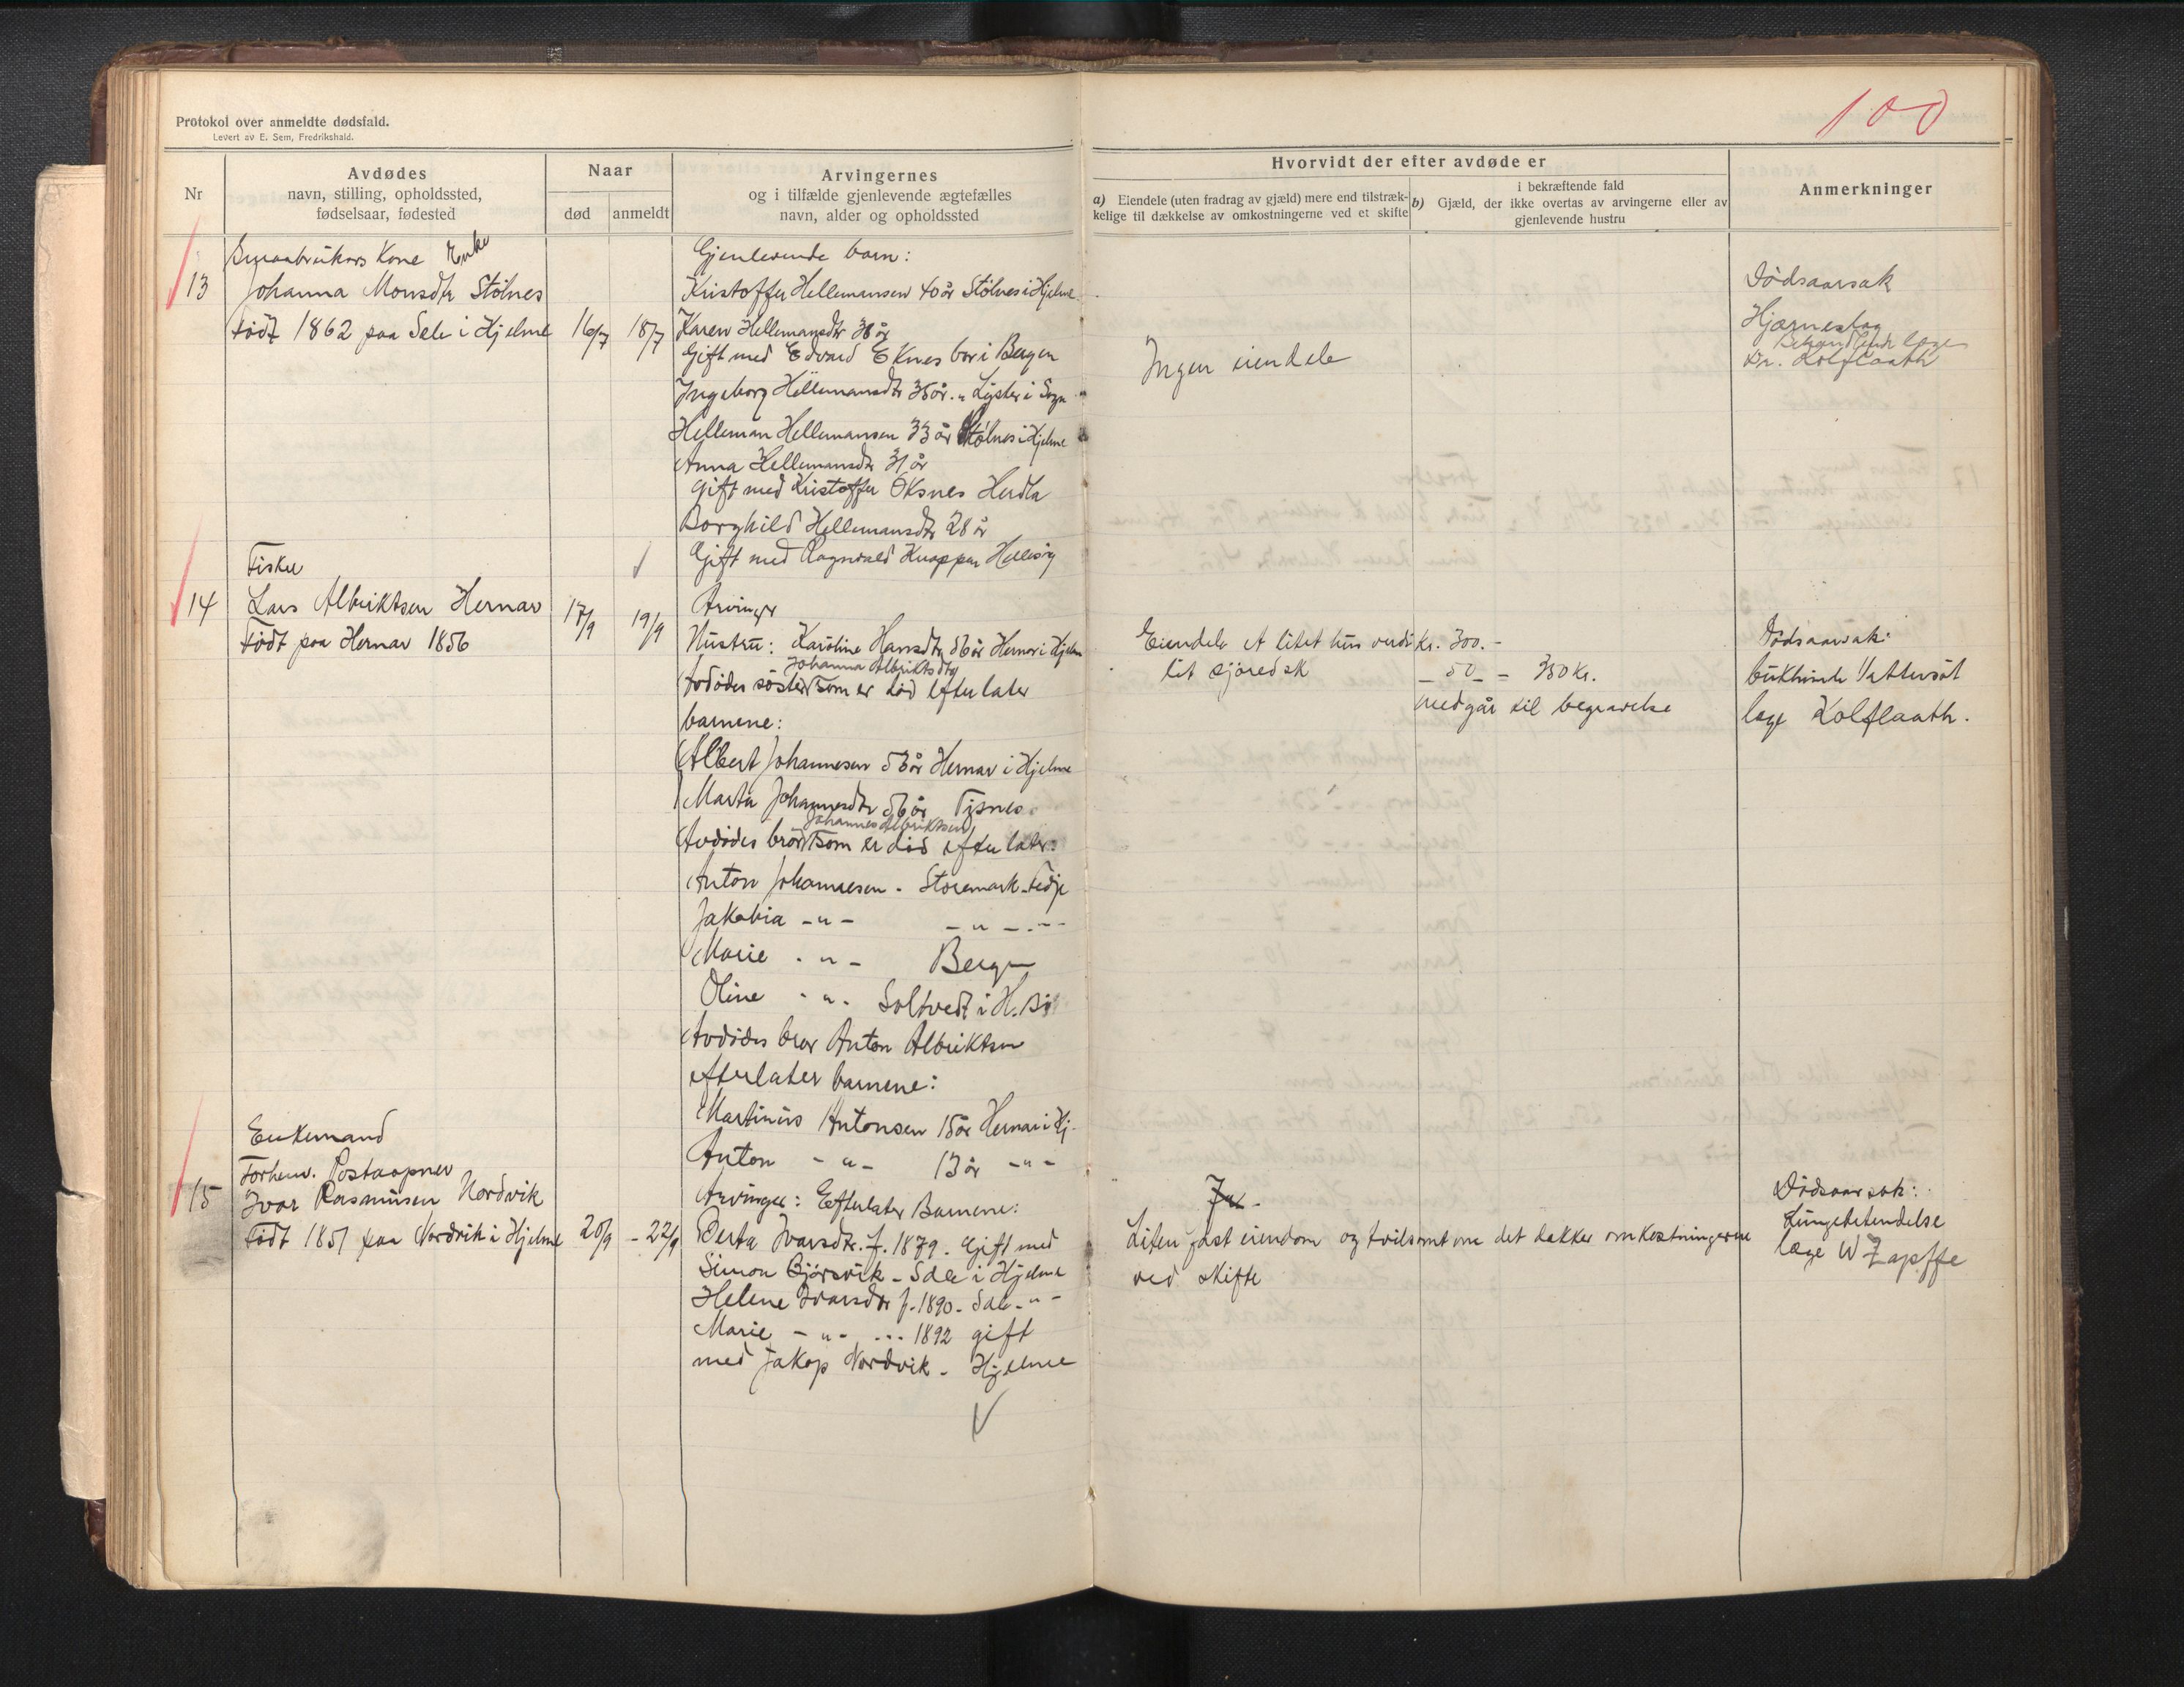 100
Protokol over anmeldte dødsfald.
Levert av E. Sem, Fredrikshald.
Nr
Avdødes
navn, stilling, opholdssted,
fødselsaar, fødested
Naar
død
anmeldt
Arvingernes
og i tilfælde gjenlevende ægtefælles
navn, alder og opholdssted
Hvorvidt der efter avdøde er
a) Eiendele (uten fradrag av gjæld) mere end tilstræk-
kelige til dækkelse av omkostningerne ved et skifte
i bekræftende fald
b) Gjæld, der ikke overtas av arvingerne eller av
gjenlevende hustru
Anmerkninger
13
Smaabrukers Kone Enke
Johanna Monsdtr Stölnes
Född 1862 paa Sele i Hjelme
16/7
18/7
Gjenlevende barn:
Kristoffer Hellemansen 40 år Stölnes i Hjelme
Karen Hellemansdtr 38 år
Gift med Edvard Eknes bor i Bergen
Ingeborg Hellemansdtr 36 år. " Lyster i Sogn
Helleman Hellemansen 33 år Stölnes i Hjelme
Anna Hellemansdtr 31 år
gift med Kristoffer Oksnes Herdla
Borghild Hellemansdtr 28 år
Gift med Ragnvald Knappen
Ingen eiendele
Dödsaarsak
Hjærneslag
Behandlende læge
Dr. Kolflaath
14
Fisker
Lars Albriktsen Hernar
Född paa Hernar 1856
17/9
19/9
Arvinger
Hustru: Karoline Hansdtr 56 år Hernar i Hjelme
Johanna Albriktsdtr
Avdödes söster som er död efterlater
barnene:
Albert Johannesen 53 år Hernar i Hjelme
Marta Johannesdtr 56 år Tysnes
Johannes Albriktsen
Avdödes bror som er död efterlater:
Anton Johannesen - Storemark - Fedje
Jakobia - " - - " - . " -
Marie - " - Bergen
Oline - " - Soltvedt i H.
Avdödes bror Anton Albriktsen
efterlater barnene:
Martinus Antonsen 15 år Hernar i Hj.
Anton - " - 13 år - " -
Eiendele et litet hus verdi kr. 300.-
lit sjöredsk - 50 - = 350 Kr.
medgår til begravelse
Dödsaarsak:
bukhinde
læge Kolflaath.
15
Enkemand
Forhenv. Postaapner
Ivar Rasmussen Nordvik
Född 1851 paa Nordvik i Hjelme
20/9
- 22/9
Arvinger: Efterlater Barnene:
Berta Ivarsdtr. f. 1879. Gift med
Simon Bjørsvik - Sæle i Hjelme
Helene Ivarsdtr f. 1890 - Sæle - " -
Marie - " - ... 1892 gift
med Jakop Nordvik - Hjelme
Ja.
Liten fast eiendom og tvilsomt om det dækker omkostningerne
ved skifte
Dödsaarsak:
Lungebetendelse
læge W Zapffe